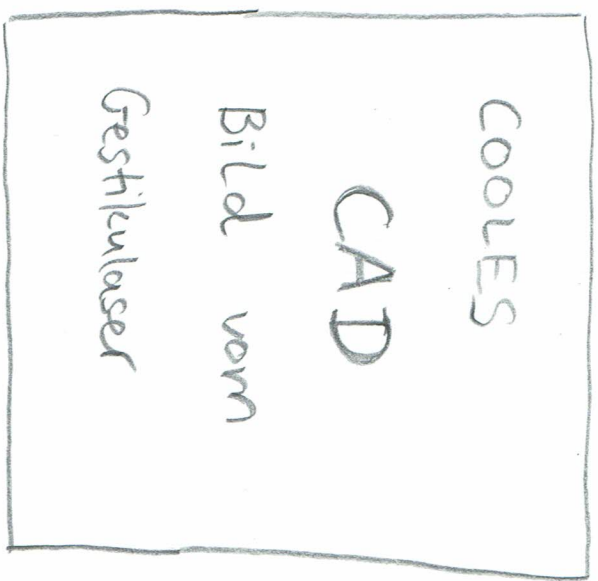 COOLES
CAD
Bild vom
Gestikulaser